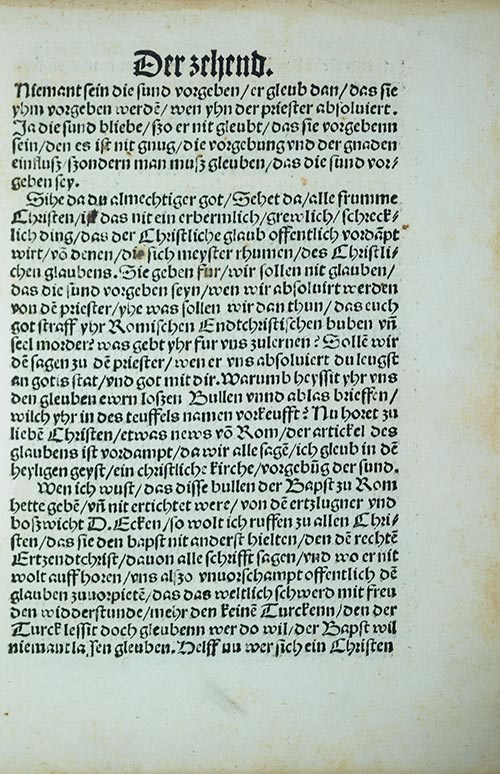 Der zehend.
Niemant sein die sund vorgeben/er gleub dan/das sie
yhm vorgeben werdē/wen yhn der priester absoluiert.
Ja die sund bliebe/szo er nit gleubt/das sie vorgebenn
sein/den es ist nit gnug/die vorgebung vnd der gnaden
einflusz/szondern man musz gleuben/das die sund vor⸗
geben sey.
Sihe da du almechtiger got/Sehet da/alle frumme
Christen/ist das nit ein erbermlich/grewlich/schreck⸗
lich ding/das der Christliche glaub offentlich vordāpt
wirt/vō denen/die sich meyster rhumen/des Christli⸗
chen glaubens. Sie geben fur/wir sollen nit glauben/
das die sund vorgeben seyn/wen wir absoluirt werden
von dē priester/yhe was sollen wir dan thun/das euch
got straff yhr Romischen Endtchristischen buben vñ
seel morder? was gebt yhr fur vns zulernen? Sollē wir
dē sagen zu dē priester/wen er vns absoluiert du leugst
an gotis stat/vnd got mit dir. Warumb heyssit yhr vns
den gleuben ewrn loszen Bullen vnnd ablas brieffen/
wilch yhr in des teuffels namen vorkeufft? Nu horet zu
liebē Christen/etwas news vō Rom/der artickel des
glaubens ist vordampt/da wir alle sagē/ich gleub in dē
heyligen geyst/ein christliche kirche/vorgebūg der sund.
Wen ich wust/das disse bullen der Bapst zu Rom
hette gebē/vñ nit ertichtet were/von dē ertzlugner vnd
boszwicht D. Ecken/so wolt ich ruffen zu allen Chri⸗
sten/das sie den bapst nit anderst hielten/den dē rechtē
Ertzendtchrist/dauon alle schrifft sagen/vnd wo er nit
wolt auff horen/vns alszo vnuorschampt offentlich dē
glauben zuuorpietē/das das weltlich schwerd mit freu
den widderstunde/mehr den keinē Turckenn/den der
Turck lessit doch gleubenn wer do wil/der Bapst wil
niemant lassen gleuben. Helff nu wer sich ein Christen